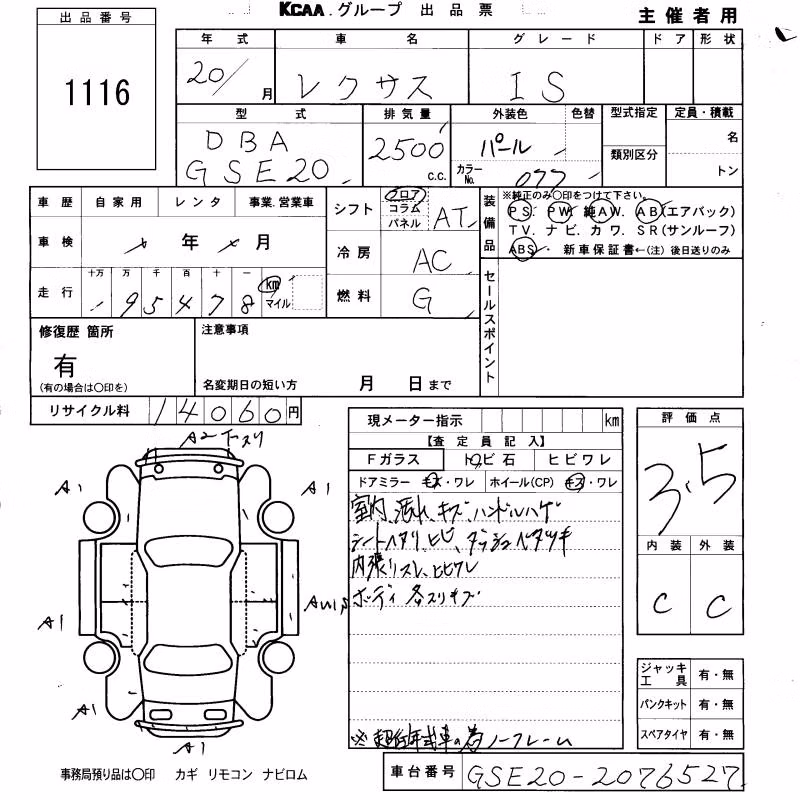 KCAA.グループ 出品票
主催者用
出品番号
1116
年式 車名 グレード ドア 形状
20/ 月 レクサス IS
型式 排気量 外装色 色替 型式指定 定員・積載
DBA
GSE20 2500 c.c. パール 類別区分 名
カラーNo. 077 トン
車歴 自家用 レンタ 事業.営業車
シフト フロア コラム パネル AT
装備品 ※純正のみ○印をつけて下さい。
PS. PW. 純AW. AB(エアバック)
TV. ナビ. カワ. SR(サンルーフ)
ABS. 新車保証書←(注) 後日送りのみ
車検 年 月
冷房 AC
走行 十万 万 千 百 十 一 km マイル
95478
燃料 G
セールスポイント
修復歴 箇所
有
(有の場合は○印を)
注意事項
名変期日の短い方 月 日まで
リサイクル料 14060円
現メーター指示 km
【査定員記入】
Fガラス トビ石 ヒビワレ
ドアミラー キズ・ワレ ホイール(CP) キズ・ワレ
室内、汚れ、キズ、ハンドルハゲ
シートヘタリ、ヒビ、ダッシュベタツキ
内張リスレ、ヒビワレ
ボディ 各スリキズ
※超低年式車の為ノーフレーム
評価点
3.5
内装 外装
C C
A2 下スリ
A1 A1
A1
A1 A1
A1
ジャッキ工具 有・無
パンクキット 有・無
スペアタイヤ 有・無
事務局預り品は○印 カギ リモコン ナビロム
車台番号 GSE20-2076527